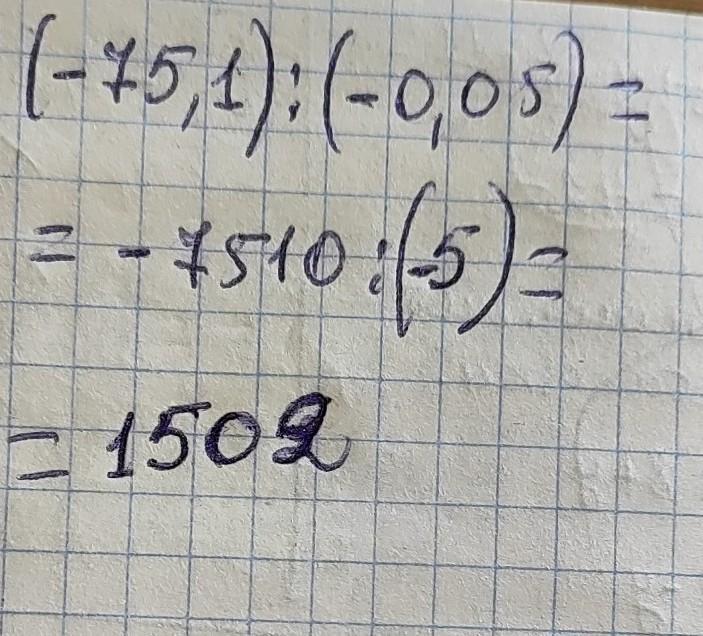 (-75,1):(-0,05)=
= -7510:(-5)=
= 1502